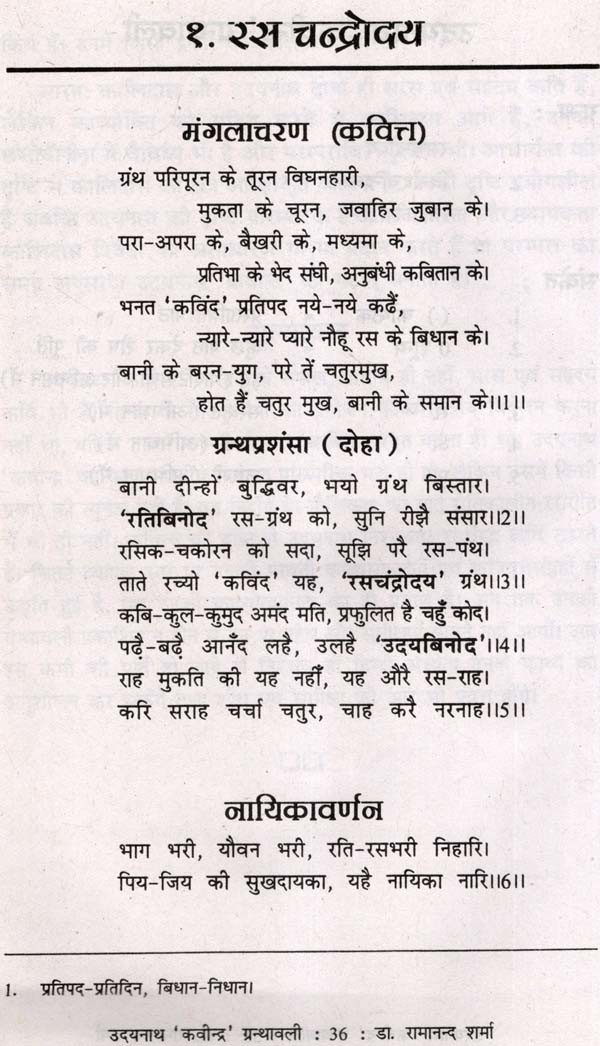 १. रस चन्द्रोदय
मंगलाचरण (कवित्त)
ग्रंथ परिपूरन के तूरन विघनहारी,
मुकता के चूरन, जवाहिर जुबान के।
परा-अपरा के, बैखरी के, मध्यमा के,
प्रतिभा के भेद संधी, अनुबंधी कबितान के।
भनत ‘कविंद’ प्रतिपद नये-नये कढ़ैं,
न्यारे-न्यारे प्यारे नौहू रस के बिधान के।
बानी के बरन-युग, परे तें चतुरमुख,
होत हैं चतुर मुख, बानी के समान के।।1।।
ग्रन्थप्रशंसा (दोहा)
बानी दीन्हों बुद्धिवर, भयो ग्रंथ बिस्तार।
‘रतिबिनोद’ रस-ग्रंथ को, सुनि रीझै संसार।।2।।
रसिक-चकोरन को सदा, सूझि परै रस-पंथ।
ताते रच्यो ‘कविंद’ यह, ‘रसचंद्रोदय’ ग्रंथ।।3।।
कबि-कुल-कुमुद अमंद मति, प्रफुलित है चहुँ कोद।
पढ़ै-बढ़ै आनँद लहै, उलहै ‘उदयबिनोद’।।4।।
राह मुकति की यह नहीं, यह औरै रस-राह।
करि सराह चर्चा चतुर, चाह करै नरनाह।।5।।
नायिकावर्णन
भाग भरी, यौवन भरी, रति-रसभरी निहारि।
पिय-जिय की सुखदायका, यहै नायिका नारि।।6।।
1. प्रतिपद-प्रतिदिन, बिधान-निधान।
उदयनाथ ‘कवीन्द्र’ ग्रन्थावली : 36 : डा. रामानन्द शर्मा